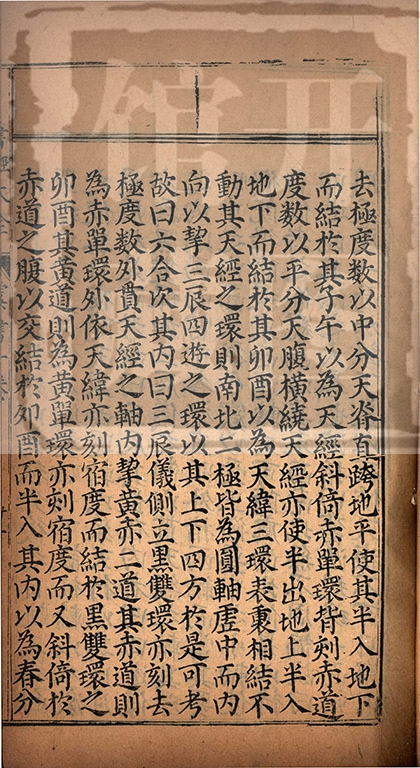 去極度數以中分天脊直跨地平使其半入地下
而結於其子午以為天經斜倚赤單環皆刻赤道
度數以平分天腹橫繞天經亦使半出地上半入
地下而結於其卯酉以為天緯三環表裏相結不
動其天經之環則南北二極皆為圓軸虛中而內
向以挈三辰四遊之環以其上下四方於是可考
故曰六合次其內曰三辰儀側立黑雙環亦刻去
極度數外貫天經之軸內挈黃赤二道其赤道則
為赤單環外依天緯亦刻宿度而結於黑雙環之
卯酉其黃道則為黃單環亦刻宿度而又斜倚於
赤道之腹以交結於卯酉而半入其內以為春分